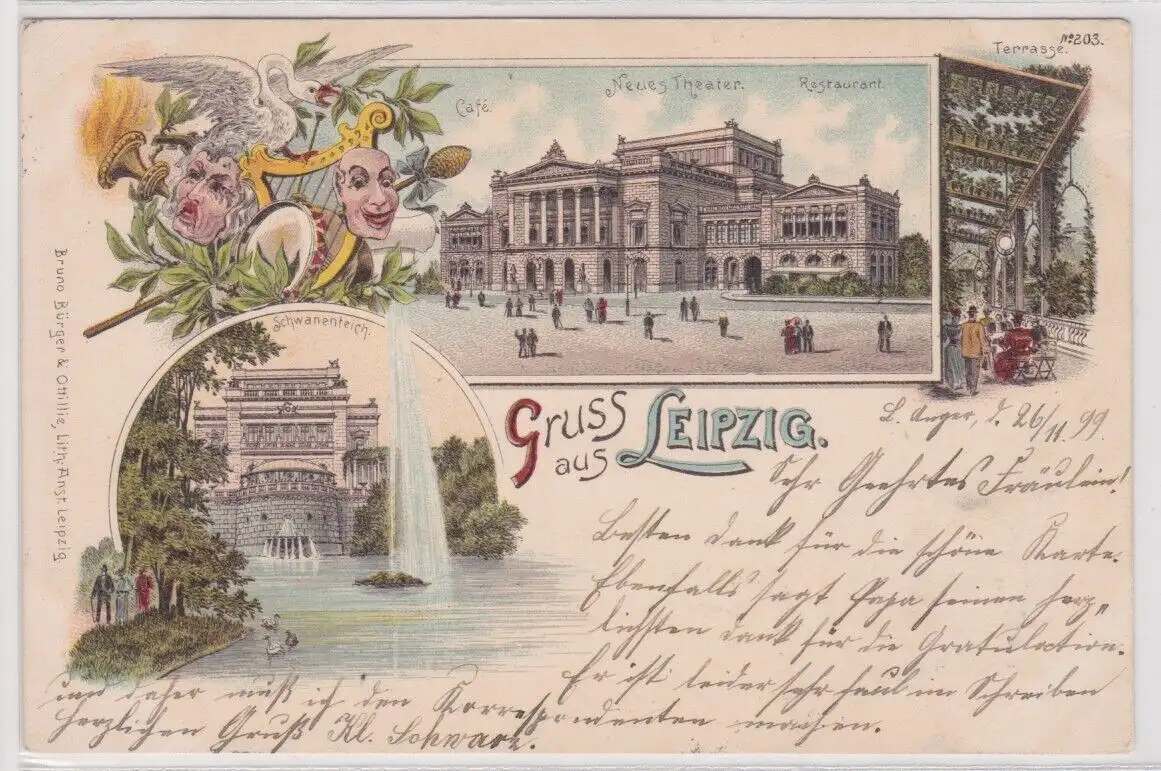 Nº 203.
Terrasse.
Café.
Neues Theater.
Restaurant.
Schwanenteich.
Bruno Bürger & Ottillie, Lith. Anst. Leipzig.
Gruss
aus LEIPZIG.
L. Anger, d. 26/11 99
Sehr Geehrtes Fräulein!
Besten Dank für die schöne Karte.
Ebenfalls sagt Papa seinen herz„
lichsten Dank für die Gratulation.
Er ist leider sehr faul im Schreiben
und daher muß ich den Korrespondenten machen.
Herzlichen Gruß Kl. Schwarz.